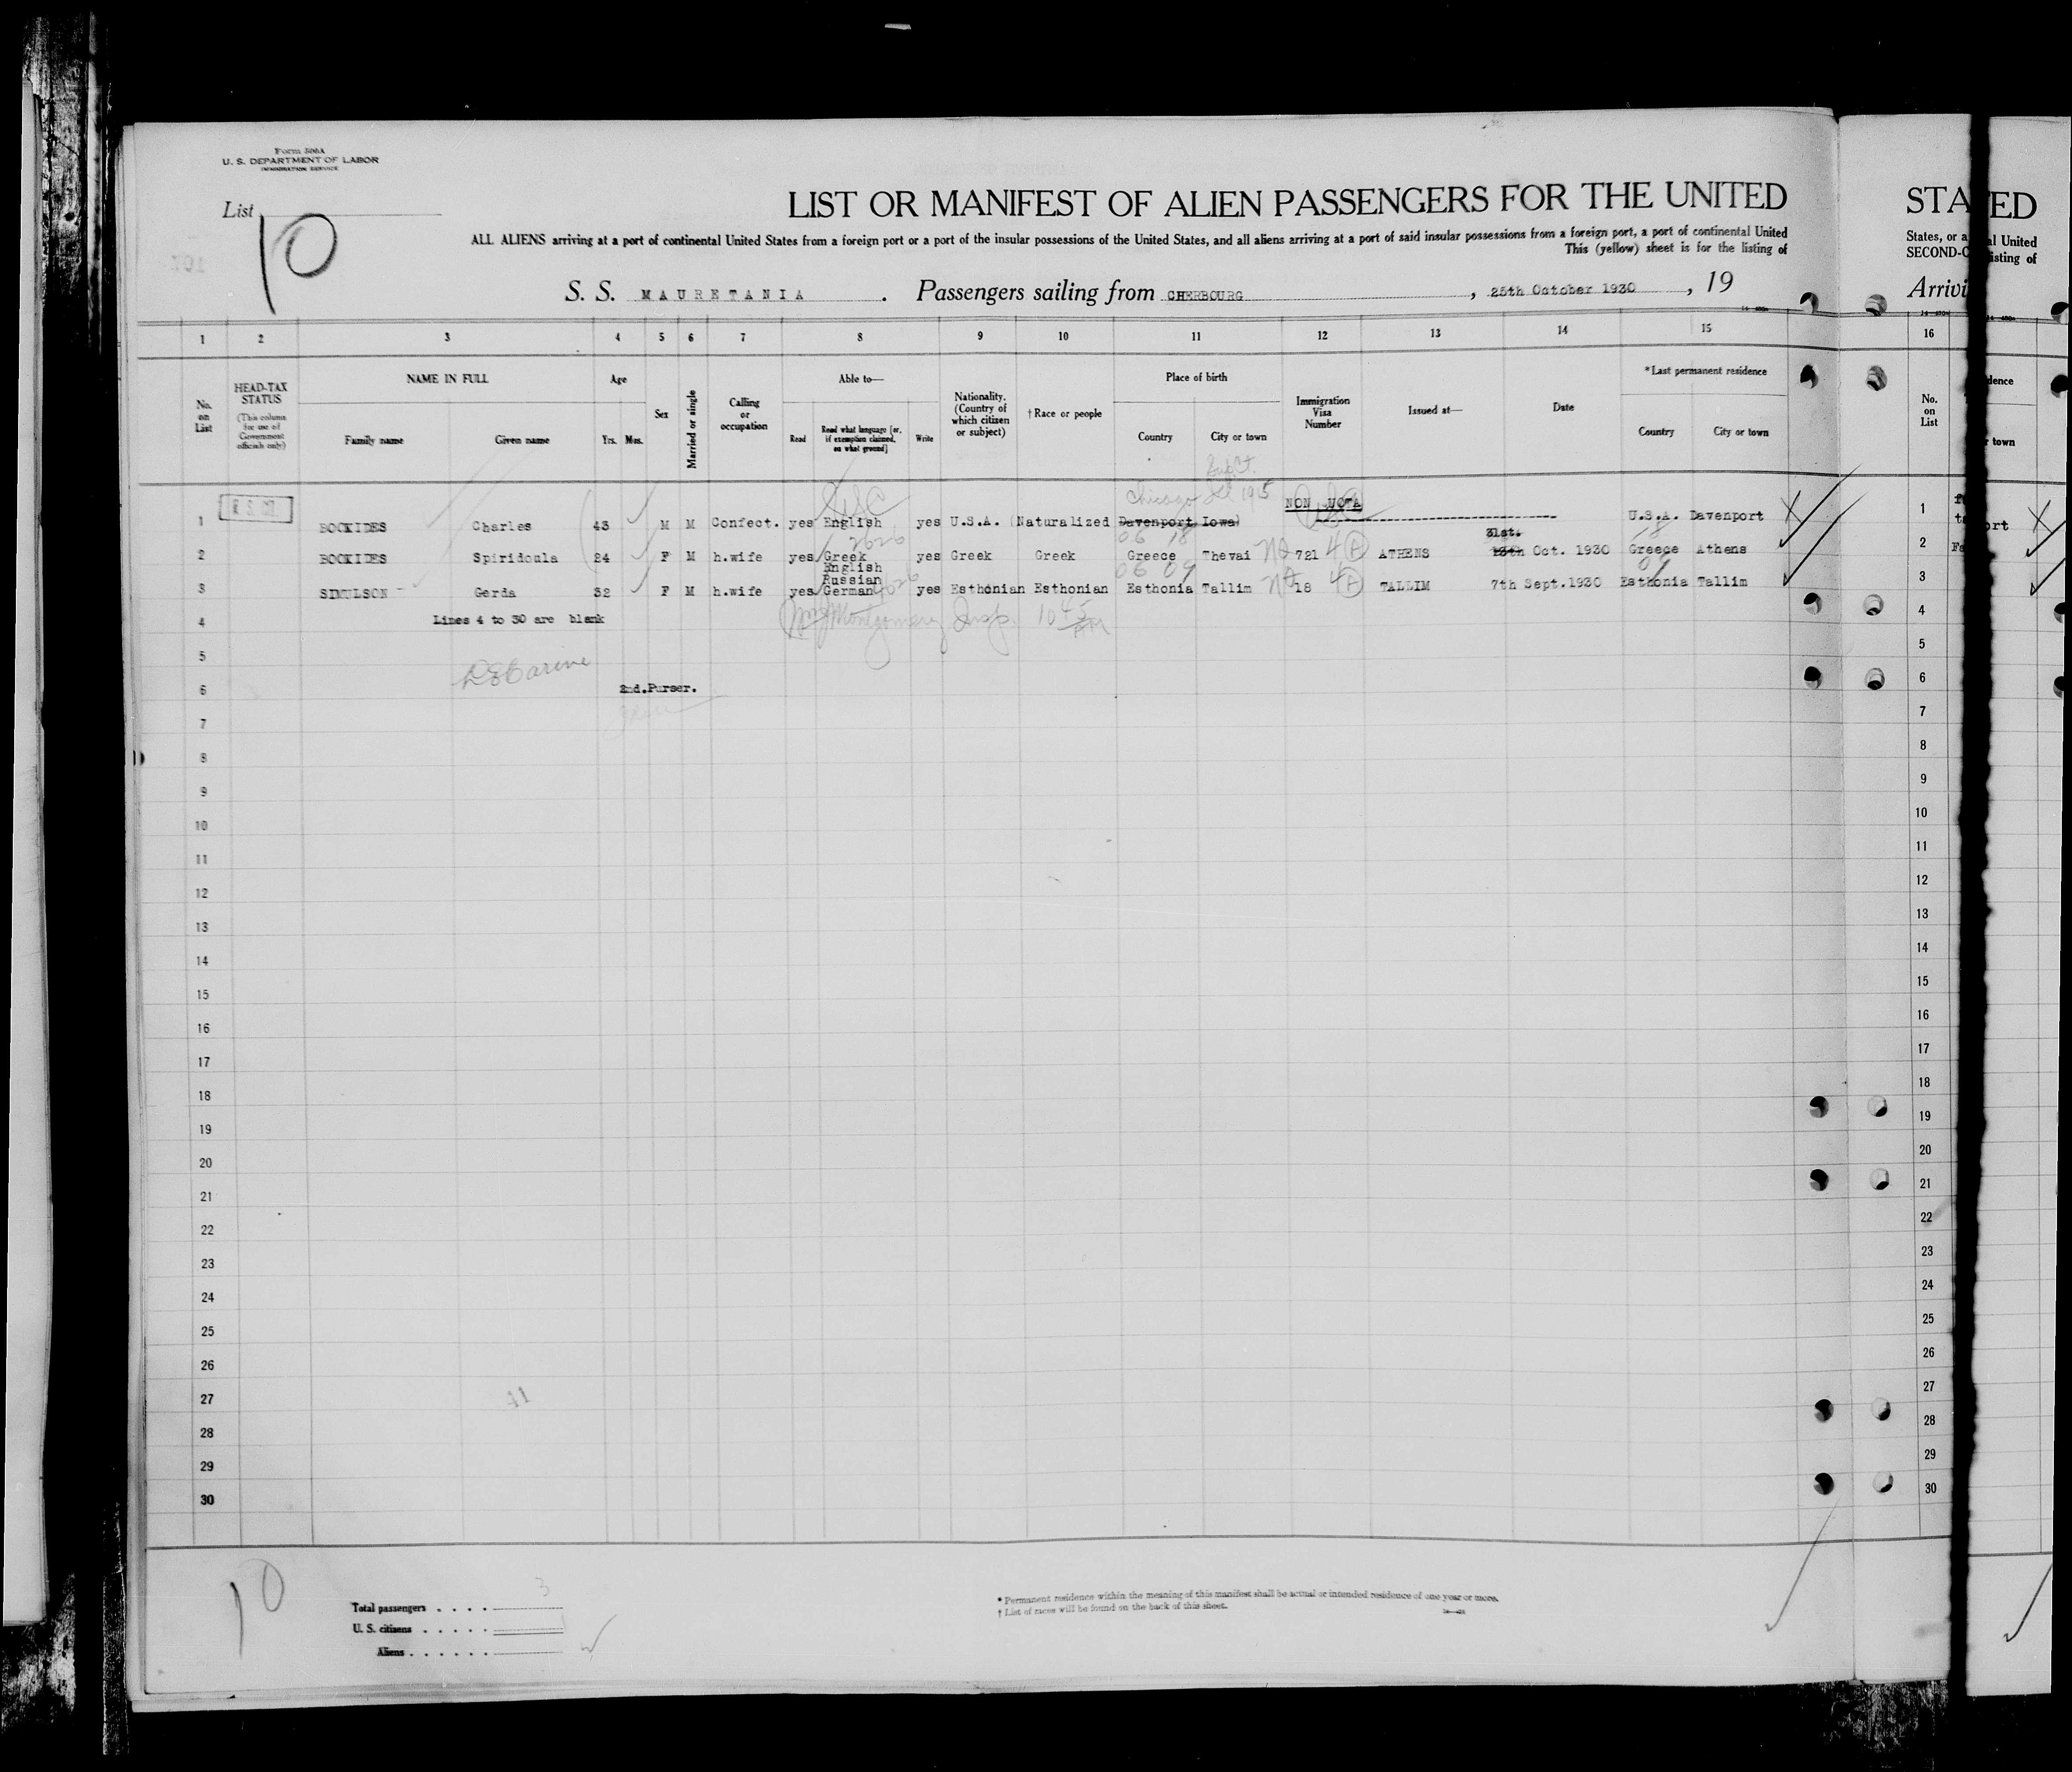 Form 500A
U. S. DEPARTMENT OF LABOR
IMMIGRATION SERVICE
List 10
LIST OR MANIFEST OF ALIEN PASSENGERS FOR THE UNITED
STA
ED
ALL ALIENS arriving at a port of continental United States from a foreign port or a port of the insular possessions of the United States, and all aliens arriving at a port of said insular possessions from a foreign port, a port of continental United
This (yellow) sheet is for the listing of
States, or a
SECOND-C
al United
isting of
S. S. MAURETANIA . Passengers sailing from CHERBOURG , 25th October 1930 , 19
Arrivi
1 2 3 4 5 6 7 8 9 10 11 12 13 14 15 16
No. on List
HEAD-TAX STATUS
(This column for use of Government officials only)
NAME IN FULL
Family name Given name
Age
Yrs. Mos.
Sex
Married or single
Calling or occupation
Able to—
Read
Read what language [or, if exemption claimed, on what ground]
Write
Nationality. (Country of which citizen or subject)
†Race or people
Place of birth
Country City or town
Immigration Visa Number
Issued at—
Date
*Last permanent residence
Country City or town
No. on List
dence
r town
Chicago 1915
NON QUOTA
1 BOOKIDES Charles 43 M M Confect. yes English yes U.S.A. (Naturalized Davenport Iowa) U.S.A. Davenport 1
ort
2626 06 18 31st. 18
2 BOOKIDES Spiridoula 24 F M h.wife yes Greek yes Greek Greek Greece Thevai 721 4 P ATHENS 13th Oct. 1930 Greece Athens 2
English 06 09 09
Russian
3 SIMULSON Gerda 32 F M h.wife yes German yes Esthonian Esthonian Esthonia Tallim 18 4 P TALLIM 7th Sept.1930 Esthonia Tallim 3
4 Lines 4 to 30 are blank Montgomery Insp. 10 45 AM 4
5 5
6 2nd.Purser. 6
7 7
8 8
9 9
10 10
11 11
12 12
13 13
14 14
15 15
16 16
17 17
18 18
19 19
20 20
21 21
22 22
23 23
24 24
25 25
26 26
27 27
28 28
29 29
30 30
10
Total passengers . . . . 3
U. S. citizens . . . . . 1
Aliens . . . . . .
* Permanent residence within the meaning of this manifest shall be actual or intended residence of one year or more.
† List of races will be found on the back of this sheet.